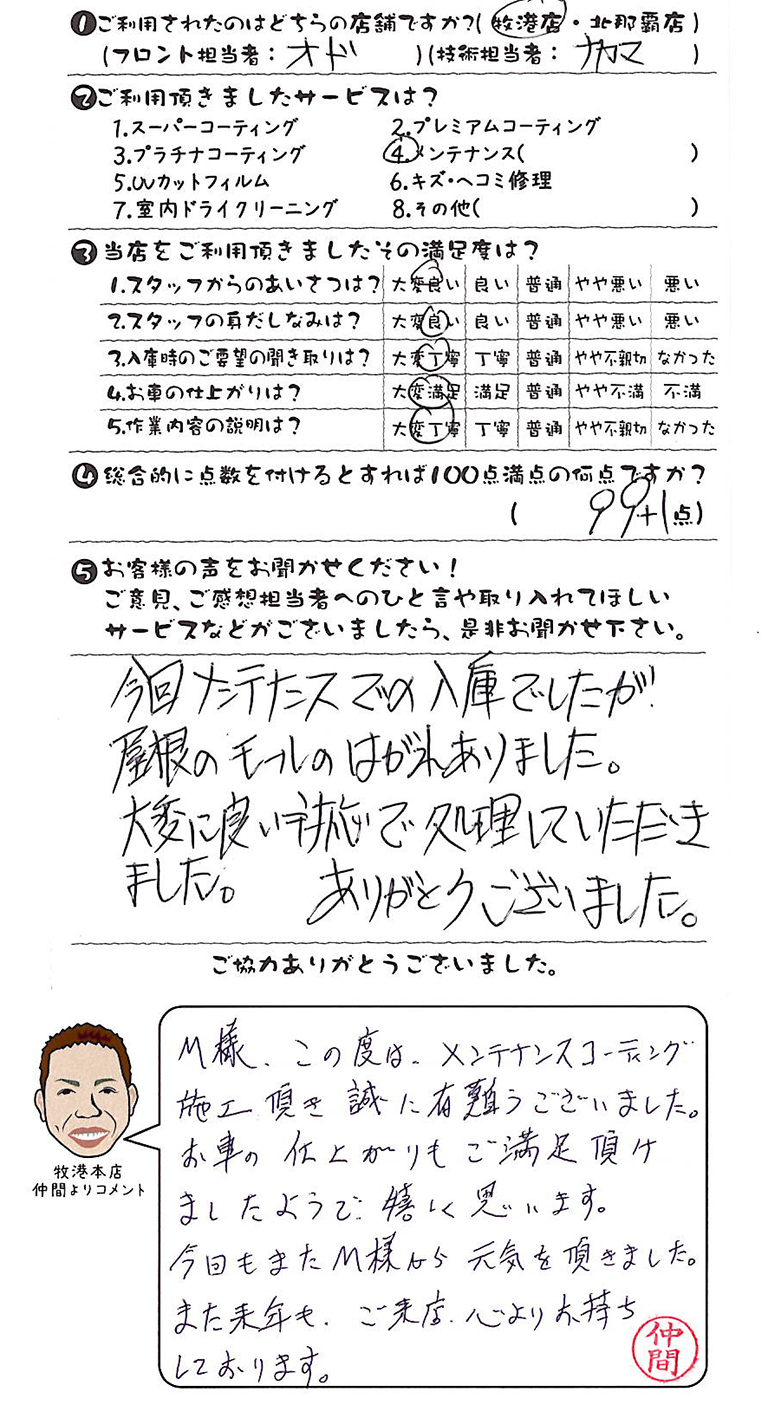 ❶ご利用されたのはどちらの店舗ですか?(牧港店・北那覇店)
(フロント担当者：オド )(技術担当者：ナカマ )
❷ご利用頂きましたサービスは？
1.スーパーコーティング 2.プレミアムコーティング
3.プラチナコーティング 4.メンテナンス( )
5.UVカットフィルム 6.キズ・ヘコミ修理
7.室内ドライクリーニング 8.その他( )
❸当店をご利用頂きましたその満足度は？
1.スタッフからのあいさつは？ 大変良い 良い 普通 やや悪い 悪い
2.スタッフの身だしなみは？ 大変良い 良い 普通 やや悪い 悪い
3.入庫時のご要望の聞き取りは？ 大変丁寧 丁寧 普通 やや不親切 なかった
4.お車の仕上がりは？ 大変満足 満足 普通 やや不満 不満
5.作業内容の説明は？ 大変丁寧 丁寧 普通 やや不親切 なかった
❹総合的に点数を付けるとすれば100点満点の何点ですか？
( 99+1点)
❺お客様の声をお聞かせください！
ご意見、ご感想担当者へのひと言や取り入れてほしい
サービスなどがございましたら、是非お聞かせ下さい。
今回メンテナンスでの入庫でしたが
屋根のモールのはがれありました。
大変に良い で処理していただき
ました。 ありがとうございました。
ご協力ありがとうございました。
M様、この度は、メンテナンスコーティング
施工頂き誠に有難うございました。
お車の仕上がりもご満足頂け
ましたようで嬉しく思います。
今回もまたM様から元気を頂きました。
また来年も、ご来店、心よりお持ち
しております。
牧港本店
仲間よりコメント
仲間